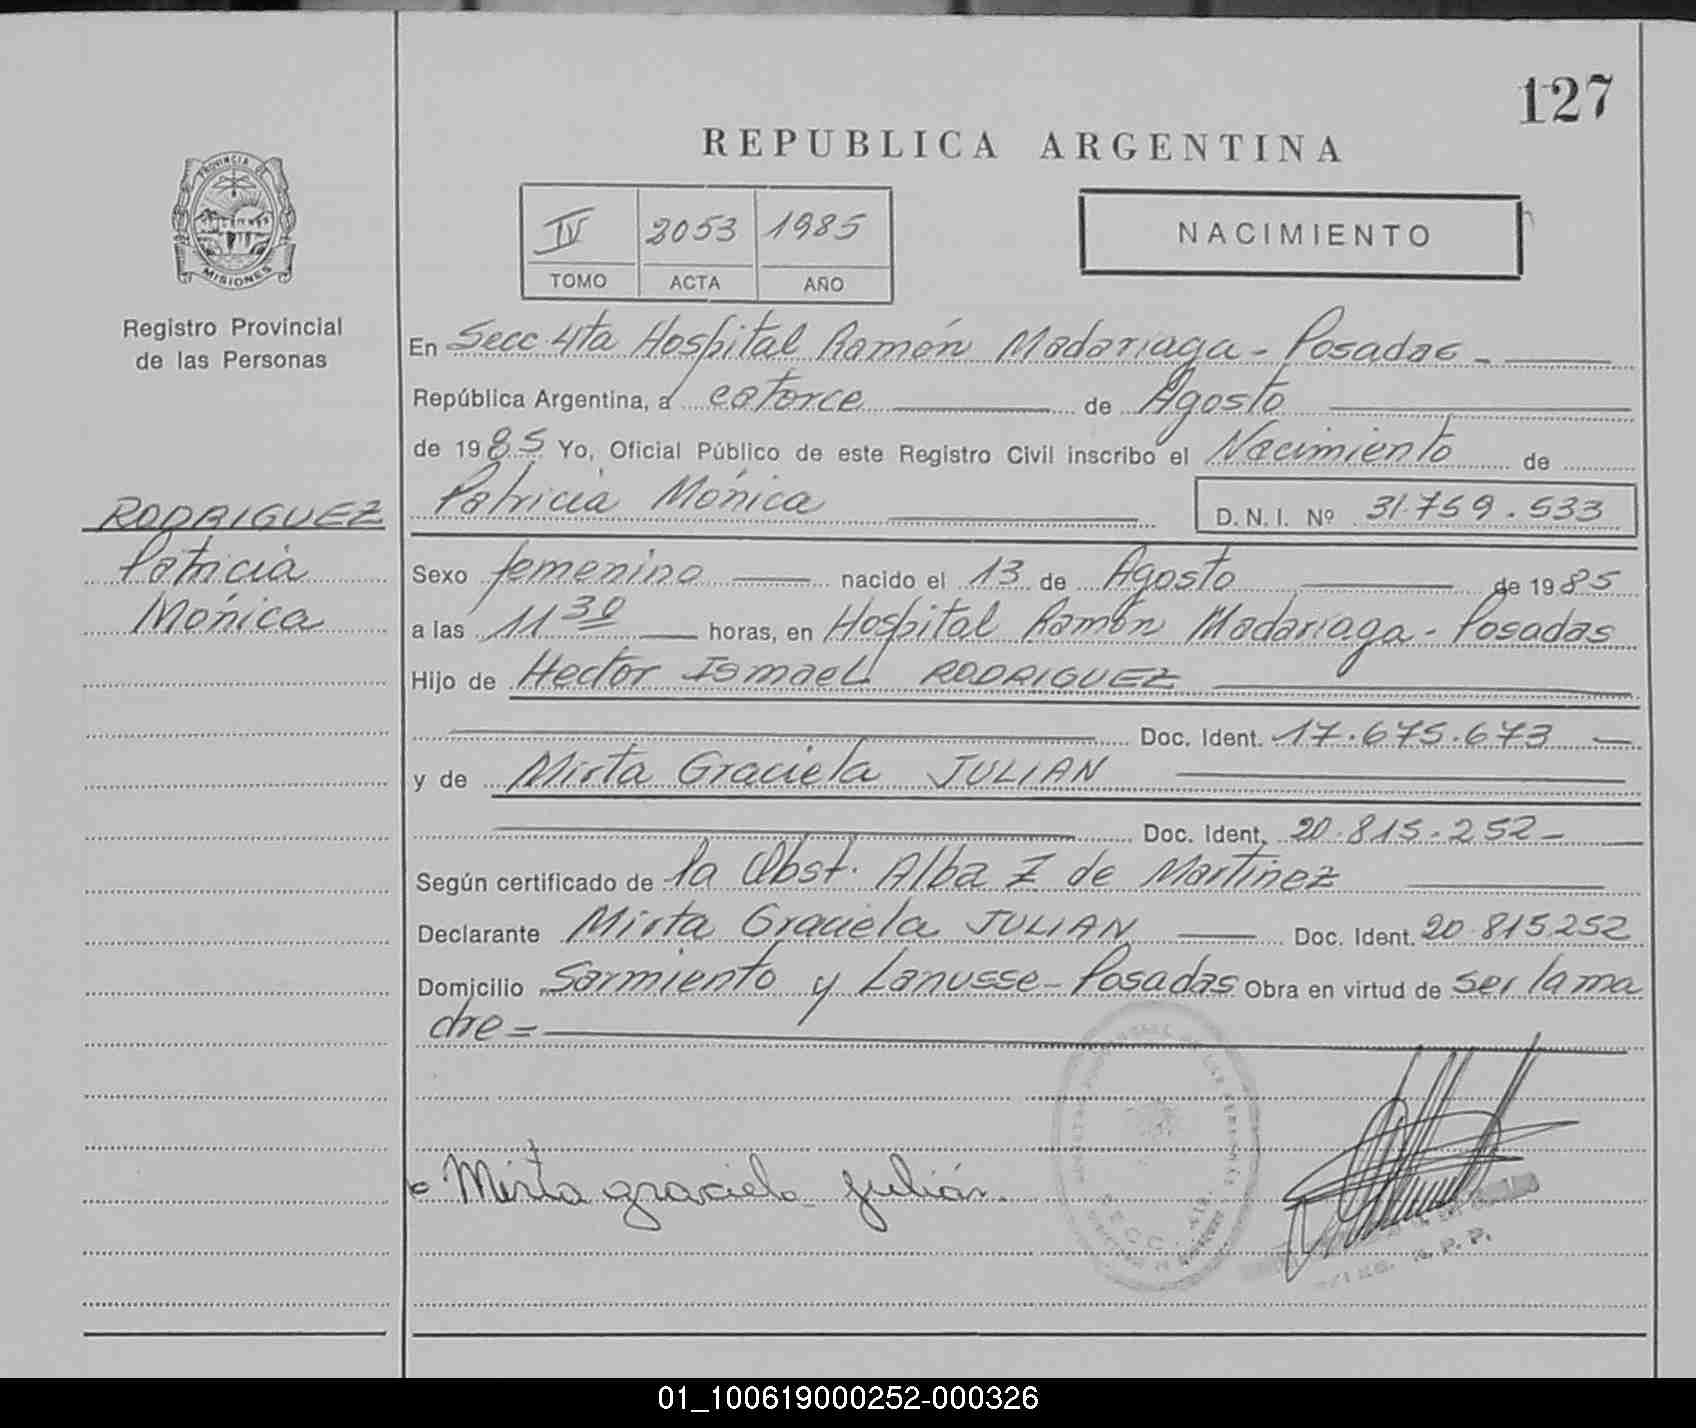 127
REPUBLICA ARGENTINA
PROVINCIA DE
MISIONES
Registro Provincial
de las Personas
IV 2053 1985
TOMO ACTA AÑO
NACIMIENTO
En Secc 4ta Hospital Ramón Madariaga - Posadas -
República Argentina, a catorce de Agosto
de 1985 Yo, Oficial Público de este Registro Civil inscribo el Nacimiento de
Patricia Mónica
D.N.I. Nº 31.759.533
RODRIGUEZ
Patricia
Mónica
Sexo femenino nacido el 13 de Agosto de 1985
a las 11 30 horas, en Hospital Ramón Madariaga - Posadas
Hijo de Hector Ismael RODRIGUEZ
Doc. Ident. 17.675.673
y de Mirta Graciela JULIAN
Doc. Ident. 20.815.252
Según certificado de la Obst. Alba Z de Martinez
Declarante Mirta Graciela JULIAN Doc. Ident. 20.815.252
Domicilio Sarmiento y Lanusse - Posadas Obra en virtud de ser la ma
dre =
Mirta graciela julián.
SECC. 4ta.
R.P.P.
01_100619000252-000326